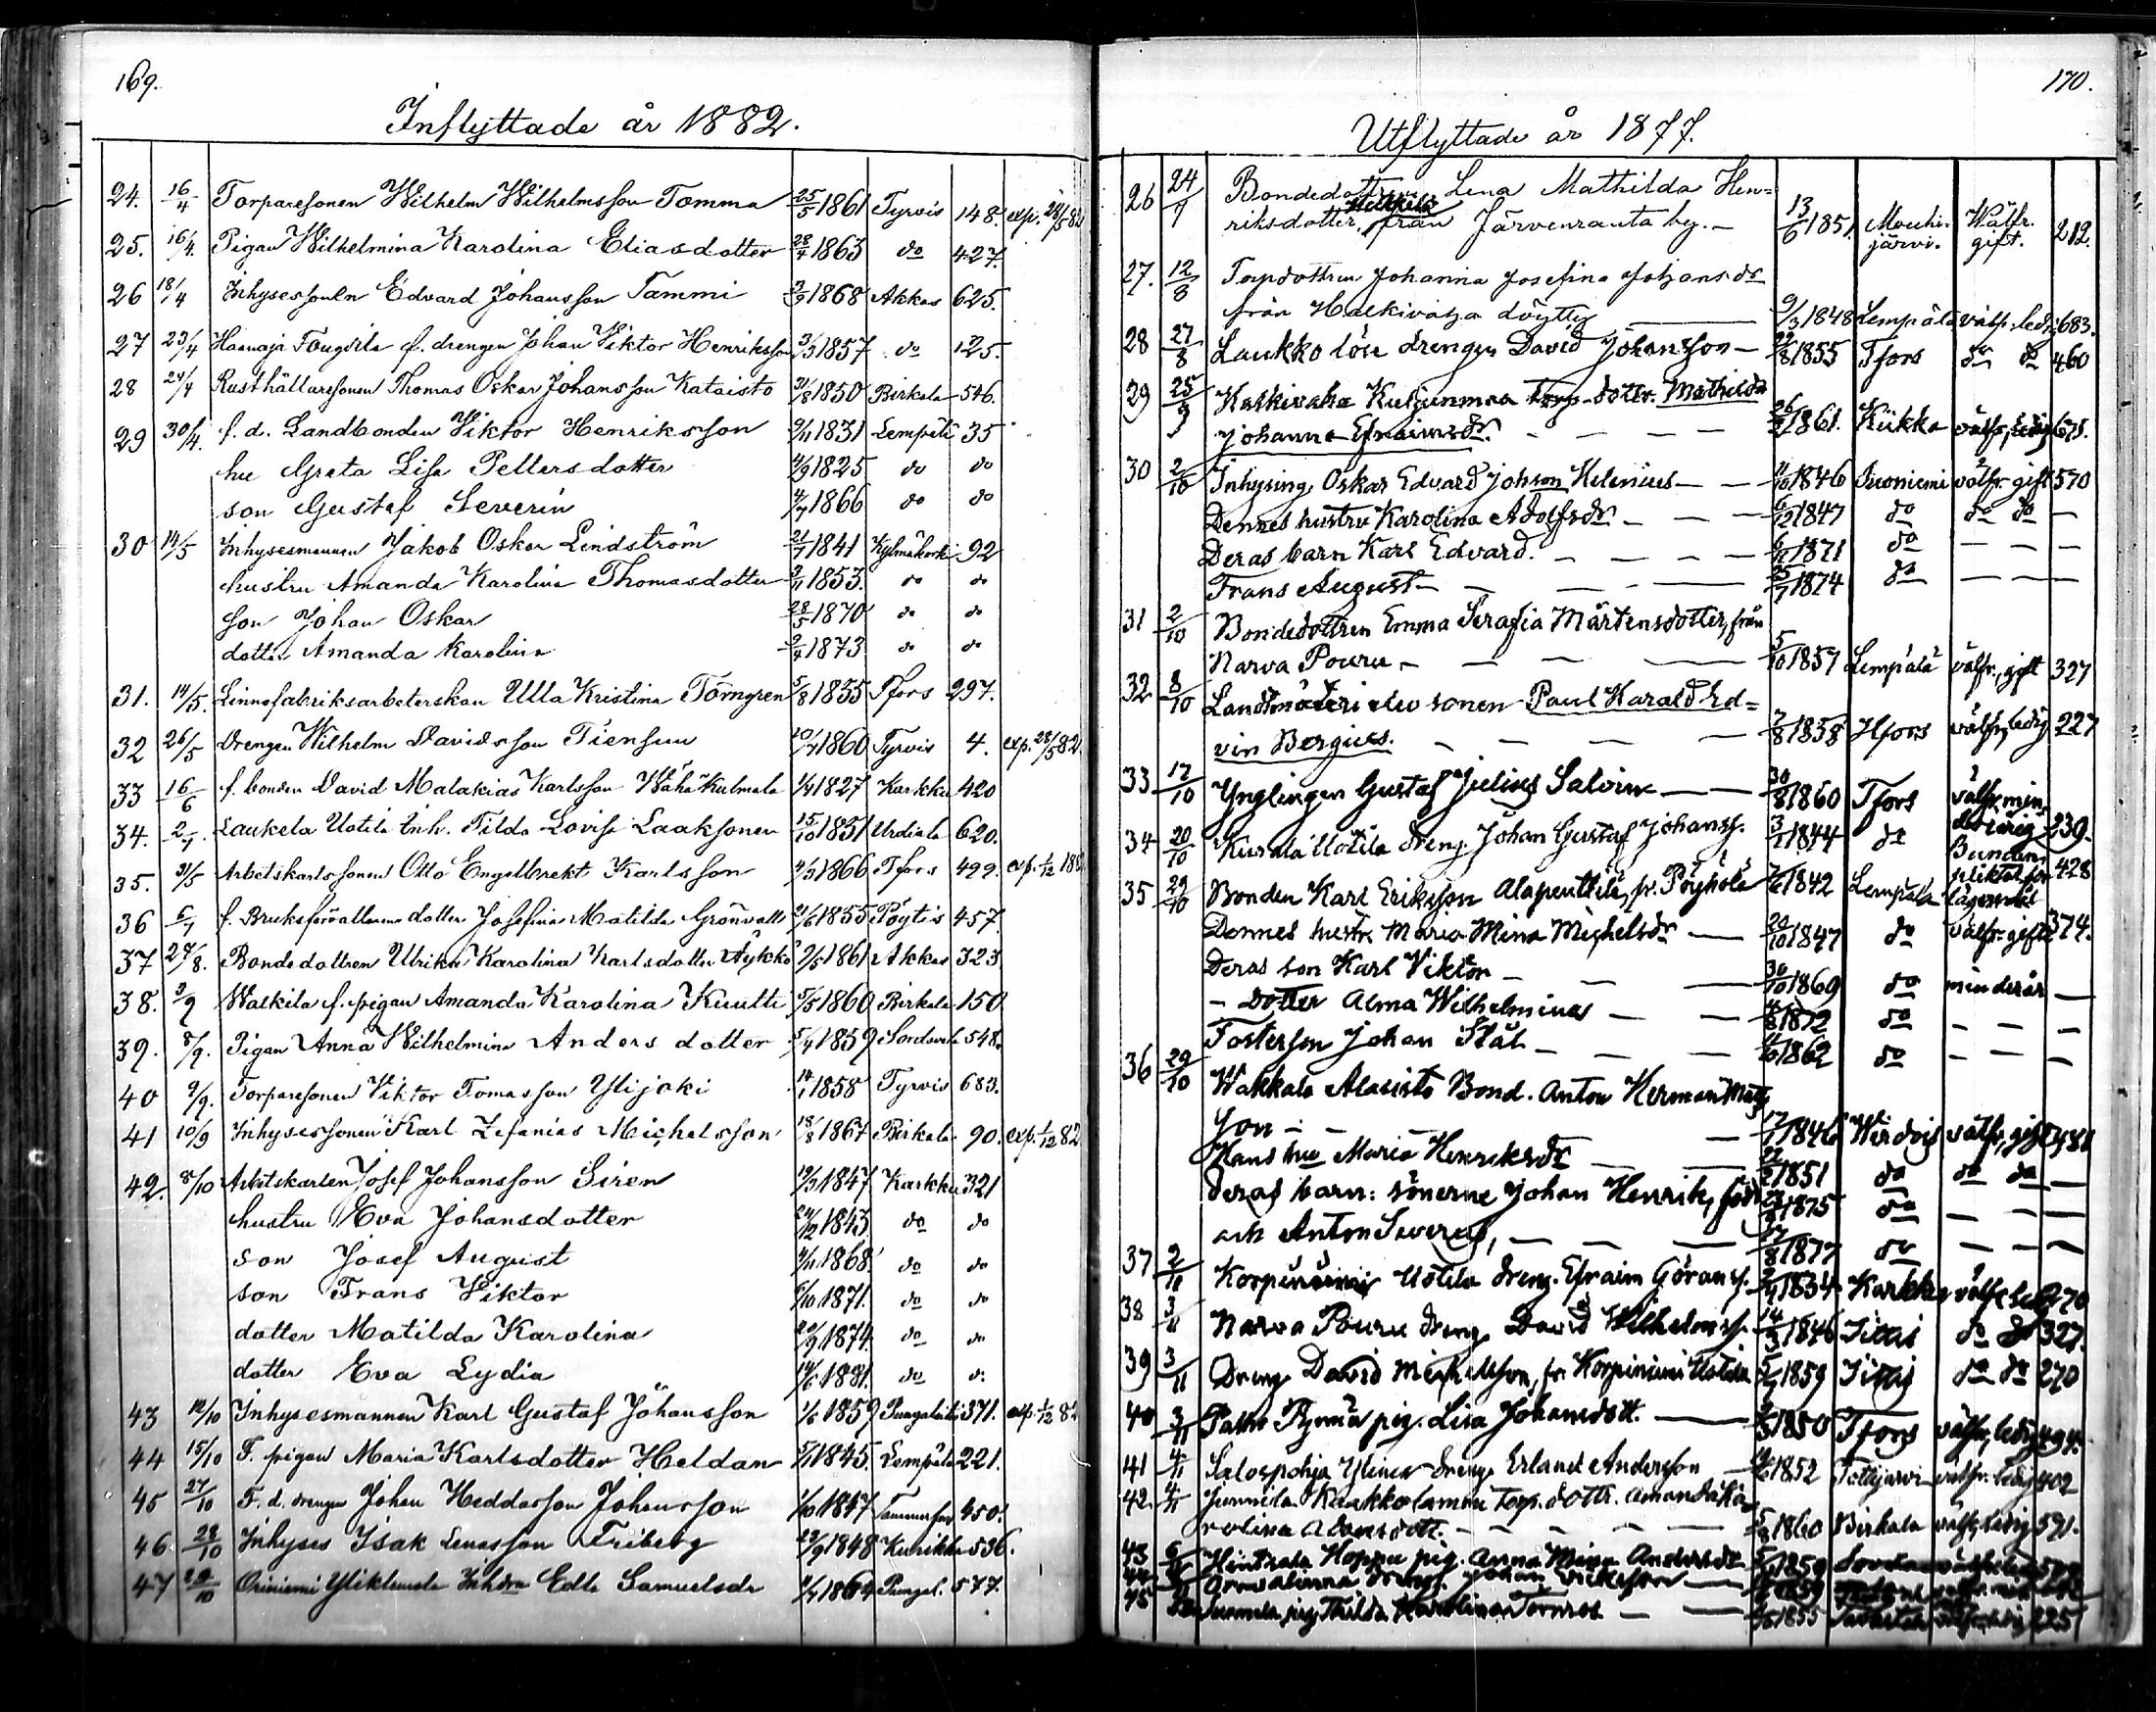 169.
Inflyttade år 1882.
24. 16/4 Torparesonen Wilhelm Wilhelmsson Tomma 25/5 1861 Tyrvis 148. exp. 28/5 82
25. 16/4. Pigan Wilhelmina Karolina Eliasdotter 28/4 1863 do 427.
26 18/4 Inhysessonen Edvard Johansson Tammi 1868 Akkas 625.
27 23/4 f. drengen Johan Viktor Henriksson 3/3 1857 do 125.
28 24/4 Rusthållaresonen Thomas Oskar Johansson Kataisto 31/8 1850 Birkala 546.
29 30/4. f. d. Landbonden Viktor Henriksson 1831 Lempälä 35
hu Greta Lisa Pettersdotter 4/9 1825 do do
son Gustaf Severin 4/7 1866 do do
30 14/5 Inhysesmannen Jakob Oskar Lindström 21/7 1841 Kylmäkoski 92
hustru Amanda Karolina Thomasdotter 3/11 1853. do do
son Johan Oskar 28/5 1870 do do
dotter Amanda Karolina 2/4 1873 do do
31. 14/5. Linnefabriksarbeterskan Ulla Kristina Törngren 5/8 1855 Tfors 297.
32 26/5 Drengen Wilhelm Davidsson Tiensuu 20/7 1860 Tyrvis 4. exp. 28/5 82.
33 16/6 f. bonden David Malakias Karlsson Wähä Kulmala 1827 Karkku 420
34. 2/7. Laukela Uotila Inh. Tilda Lovisa Laaksonen 15/10 1851 Urdiala 620.
35. 31/5 Arbetskarlssonen Otto Engelbrekt Karlsson 4/3 1866 Tfors 499. exp. 1/12 1882
36 6/7 f. Bruksförvaltarens dotter Josefina Matilda Grönvall 2/6 1855 Pöytis 457.
37 28/8. Bondedottren Ulrika Karolina Karlsdotter Äykkö 9/5 1861 Akkas 323.
38. 3/9 Walkila f. pigan Amanda Karolina Kuutti 5/5 1860 Birkala 150
39. 8/9. Pigan Anna Wilhelmina Andersdotter 5/4 1859 548.
40 9/9. Torparesonen Viktor Tomasson Ylijoki 14/1 1858 Tyrvis 683.
41 10/9 Inhysessonen Karl Zefanias Michelsson 18/8 1867 Birkala 90. exp. 1/12 82
42. 8/10 Arbetskarlen Josef Johansson Siren 19/3 1847 Karkku 321
hustru Eva Johansdotter 24/12 1843 do do
son Josef August 4/11 1868. do do
son Frans Viktor 6/10 1871. do do
dotter Matilda Karolina 20/9 1874. do do
dotter Eva Lydia 14/6 1881. do do
43 12/10 Inhysesmannen Karl Gustaf Johansson 1/6 1859 371. exp. 1/12 82
44 15/10 F. pigan Maria Karlsdotter Heldan 1845. Lempälä 221.
45 27/10 F. d. drengen Johan Heddasson Johansson 1/10 1847 450.
46. 28/10 Inhyses Isak Lenasson Friberg 23/9 1848 Kurikka 536.
47 29/10 Edla Samuelsdr 1864 Pungal. 577.
170.
Utflyttade år 1877.
26 24/7 Bondedottren Lena Mathilda Hen=
riksdotter, från Järvenranta by. — 13/6 1851. Mouhijärvi. Wälfr. gift. 212.
27. 12/8 Torpdottren Johanna Josefina Johansdr
från Halkivaha 1848 Lempälä välfr. ledig 683.
28 27/8 Laukko löse drengen David Johansson — 1855 Tfors do do 460
29 25/9 Halkivaha Kuljunmaa Torp. dottr. Mathilda
Johanna Efraimsdr. — — — 26/2 1861. Kiikka välfr, ledig 675.
30 2/10 Inhysing, Oskar Edvard Johsson Helenius — — 11/10 1846 Suoniemi välfr. gift 570
Dennes hustru Karolina Adolfsdr — — — 6/12 1847 do do do —
Deras barn Karl Edvard. — — — 1871 do — — —
Frans August — — — — 25/7 1874 do — — —
31 2/10 Bondedottren Emma Serafia Mårtensdotter, från
Narva Pouru — — — 5/10 1857 Lempälä välfr., gift 327
32 8/10 Landtmäteri elev sonen Paul Harald Ed=
vin Bergius. — — — 7/8 1858 Hfors välfr, ledig 227
33 12/10 Ynglingen Gustaf Julius Salvin — — 30/8 1860 Tfors välfr. min derårig 239.
34 20/10 Kurala Uotila dreng. Johan Gustaf Johanss. 3/1 1844 do 428
35 29/10 Bonden Karl Eriksson Alapenttilä, fr. Pöyhölä 7/6 1842 Lempälä
Dennes hustr. Maria Mina Michelsdr — 20/10 1847 do välfr. gift 374.
Deras son Karl Viktor — — — 30/10 1869 do minderår —
— dotter Alma Wilhelmina — — 1872 do — — —
Fosterson Johan Stål — — — 1862 do — — —
36 29/10 Wakkala Alaristo Bond. Anton Herman Mats
son — — — 17/1 1846 Wirdois välfr, gift 481
Hans hu Maria Henriksdr — — 22/2 1851 do do do —
Deras barn: sönerne Johan Henrik, född 1875 do — — —
och Anton Severus, — — — 1877 do — — —
37 2/11 Korpiniemi Uotila dreng. Efraim Görans s. 1834 Karkku välfr. ledig 270
38 3/11 Narva Pouru dreng David Wilhelms s. 14/3 1846 Jittis do do 327.
39 3/11 Dreng David Michelsson, fr. Korpiniemi Uotila 1859 Jittis do do 270
40 3/11 pig. Lisa Johansdott. — 1850 Tfors välfr, ledig 494.
41 4/11 Salospohja Ylinen dreng. Erland Andersson — 1852 Tottijärvi välfr. ledig 402
42. 4/11 Junnila Kaakkolamaa Torp. dottr. Amanda Ka
rolina Adamsdott. — — — 1860 Birkala välfr, ledig 591.
43 6/11 Hintsala Hoppu pig. Anna Mina Andersdr 1859
44 dreng. Johan 1859
45 pig Thilda Karolina Törnros — — 1855 225